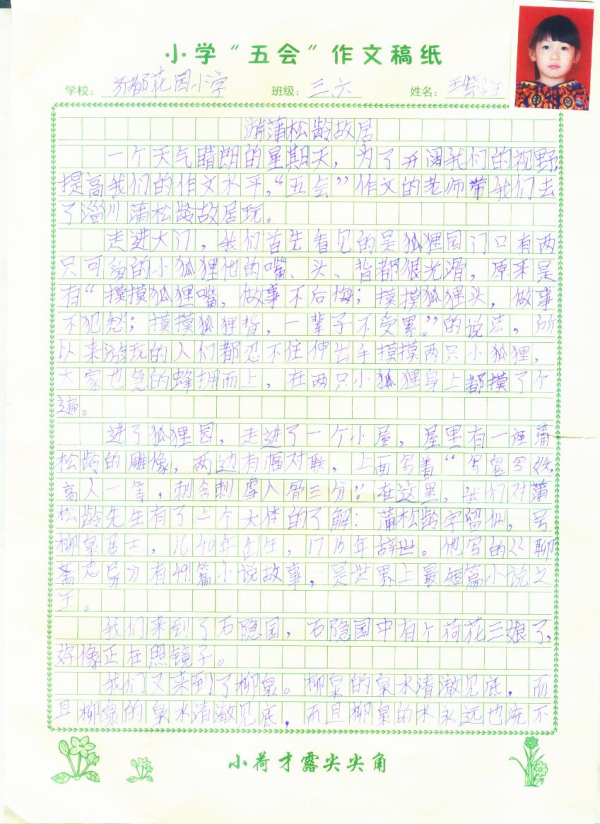 小学“五会”作文稿纸
学校：花园小学 班级：三六 姓名：王
游蒲松龄故居
一个天气晴朗的星期天，为了开阔我们的视野，
提高我们的作文水平，“五会”作文的老师带我们去
了淄川蒲松龄故居玩。
走进大门，我们首先看见的是狐狸园门口有两
只可爱的小狐狸他的嘴、头、背都很光滑，原来是
有“摸摸狐狸嘴，做事不后悔；摸摸狐狸头，做事
不犯愁；摸摸狐狸背，一辈子不受累。”的说法，所
以来游玩的人们都忍不住伸出手摸摸两只小狐狸，
大家也急的蜂拥而上，在两只小狐狸身上都摸了个
遍。
进了狐狸园，走进了一个小屋，屋里有一座蒲
松龄的雕像，两边有幅对联，上面写着“写鬼写妖
高人一等，刺贪刺虐入骨三分”。在这里，我们对蒲
松龄先生有了一个大体的了解：蒲松龄字留仙，号
柳泉居士，1640年出生，1715年辞世。他写的《聊
斋志异》有491篇小说故事，是世界上最短篇小说之
王。
我们来到了石隐园，石隐园中有个荷花三娘子，
好像正在照镜子。
我们又来到了柳泉。柳泉的泉水清澈见底，而
且柳泉的泉水清澈见底，而且柳泉的水永远也流不
小荷才露尖尖角